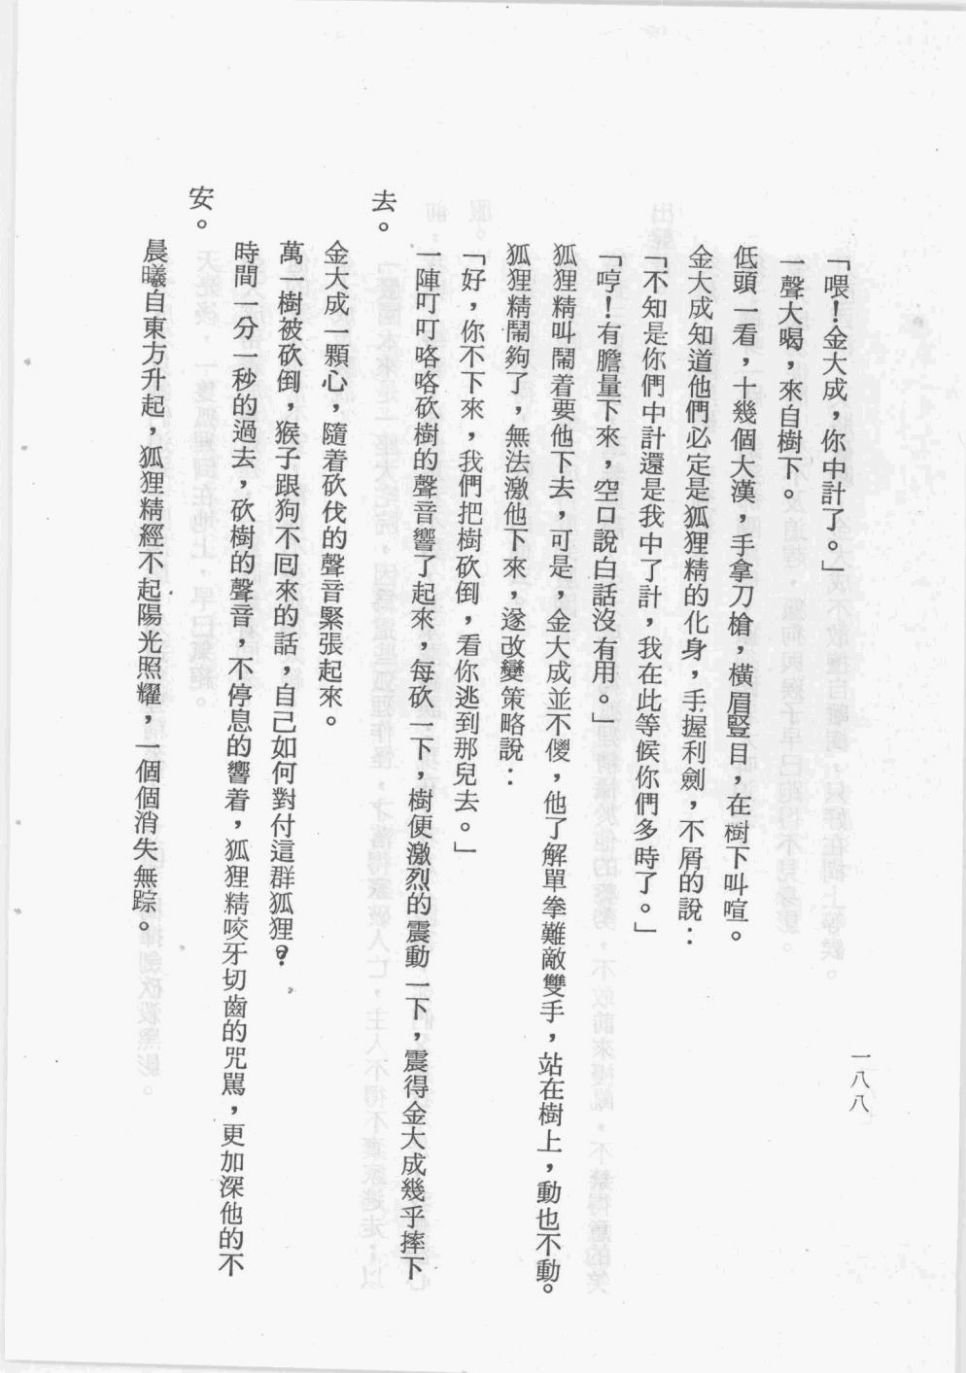 「喂！金大成，你中計了。」
一聲大喝，來自樹下。
低頭一看，十幾個大漢，手拿刀槍，橫眉豎目，在樹下叫喧。
金大成知道他們必定是狐狸精的化身，手握利劍，不屑的說：
「不知是你們中計還是我中了計，我在此等候你們多時了。」
「哼！有膽量下來，空口說白話沒有用。」
狐狸精叫鬧着要他下去，可是，金大成並不儍，他了解單拳難敵雙手，站在樹上，動也不動。
狐狸精鬧夠了，無法激他下來，遂改變策略說：
「好，你不下來，我們把樹砍倒，看你逃到那兒去。」
一陣叮叮咯咯砍樹的聲音響了起來，每砍一下，樹便激烈的震動一下，震得金大成幾乎摔下
去。
金大成一顆心，隨着砍伐的聲音緊張起來。
萬一樹被砍倒，猴子跟狗不回來的話，自己如何對付這群狐狸？
時間一分一秒的過去，砍樹的聲音，不停息的響着，狐狸精咬牙切齒的咒駡，更加深他的不
安。
晨曦自東方升起，狐狸精經不起陽光照耀，一個個消失無踪。
一八八